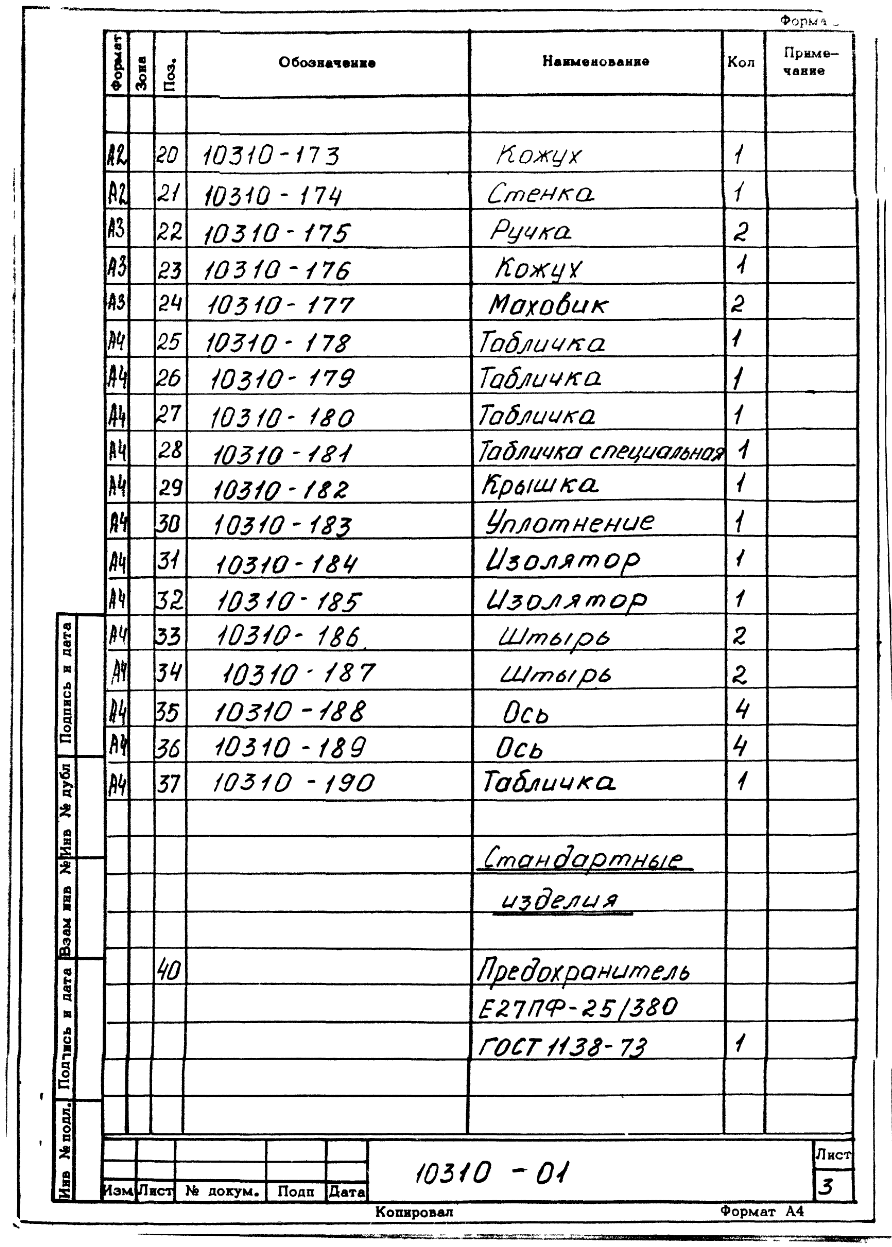 Форма
Формат Зона Поз. Обозначение Наименование Кол Приме-
чание
А2 20 10310-173 Кожух 1
А2 21 10310-174 Стенка 1
А3 22 10310-175 Ручка 2
А3 23 10310-176 Кожух 1
А3 24 10310-177 Маховик 2
А4 25 10310-178 Табличка 1
А4 26 10310-179 Табличка 1
А4 27 10310-180 Табличка 1
А4 28 10310-181 Табличка специальная 1
А4 29 10310-182 Крышка 1
А4 30 10310-183 Уплотнение 1
А4 31 10310-184 Изолятор 1
А4 32 10310-185 Изолятор 1
А4 33 10310-186 Штырь 2
А4 34 10310-187 Штырь 2
А4 35 10310-188 Ось 4
А4 36 10310-189 Ось 4
А4 37 10310-190 Табличка 1
Стандартные
изделия
40 Предохранитель
Е27ПФ-25/380
ГОСТ 1138-73 1
Подпись и дата
Инв № дубл
Взам инв №
Подпись и дата
Инв № подл.
Изм Лист № докум. Подп Дата
10310-01
Лист
3
Копировал Формат А4